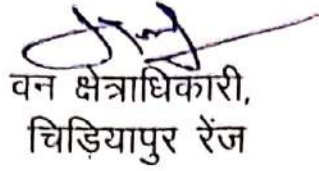 वन क्षेत्राधिकारी,
चिड़ियापुर रेंज